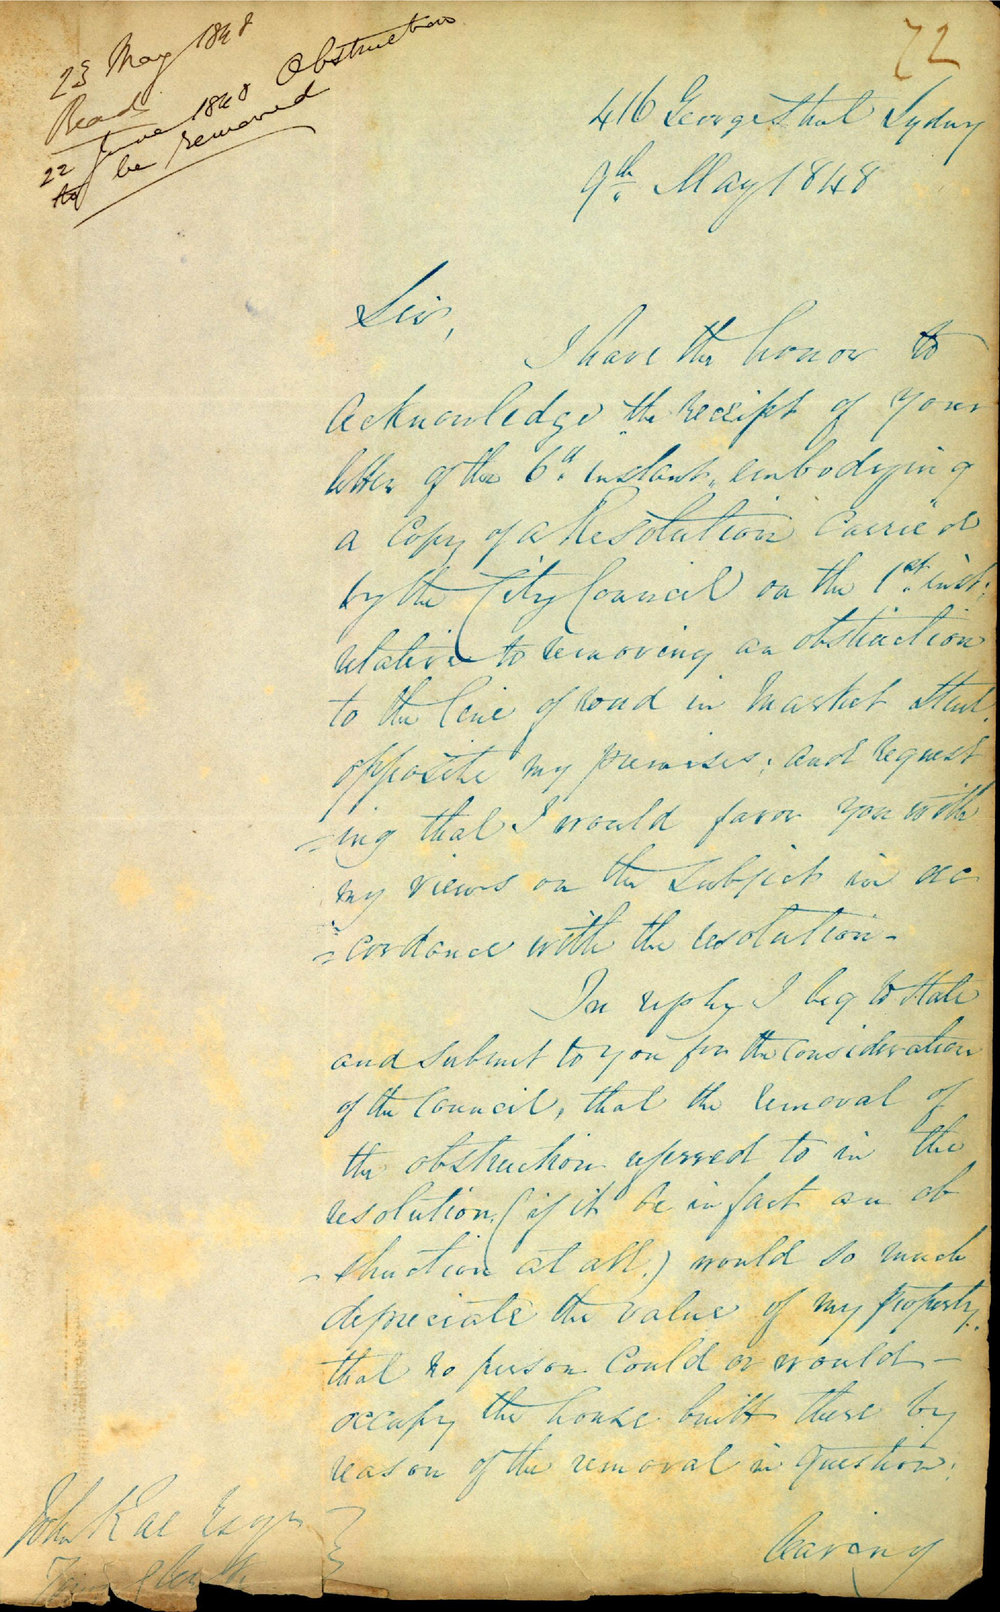 72
23 May 1848
Read
22 June 1848 Obstruction
to be removed
416 George Street Sydney
9th. May 1848
Sir,
I have the honor to
acknowledge the receipt of your
letter of the 6th. instant, embodying
a copy of a Resolution carried
by the City Council on the 1st. inst:
relative to removing an obstruction
to the line of road in Market Street
opposite my premises; and request
=ing that I would favor you with
my views on the subject in ac
=cordance with the resolution -
In reply I beg to state
and submit to you for the consideration
of the Council, that the removal of
the obstruction referred to in the
resolution, (if it be in fact an ob
-struction at all.) would so much
depreciate the value of my property,
that no person could or would -
occupy the house built there by
reason of the removal in question;
leaving
John Rae Esqre
Town Clerk